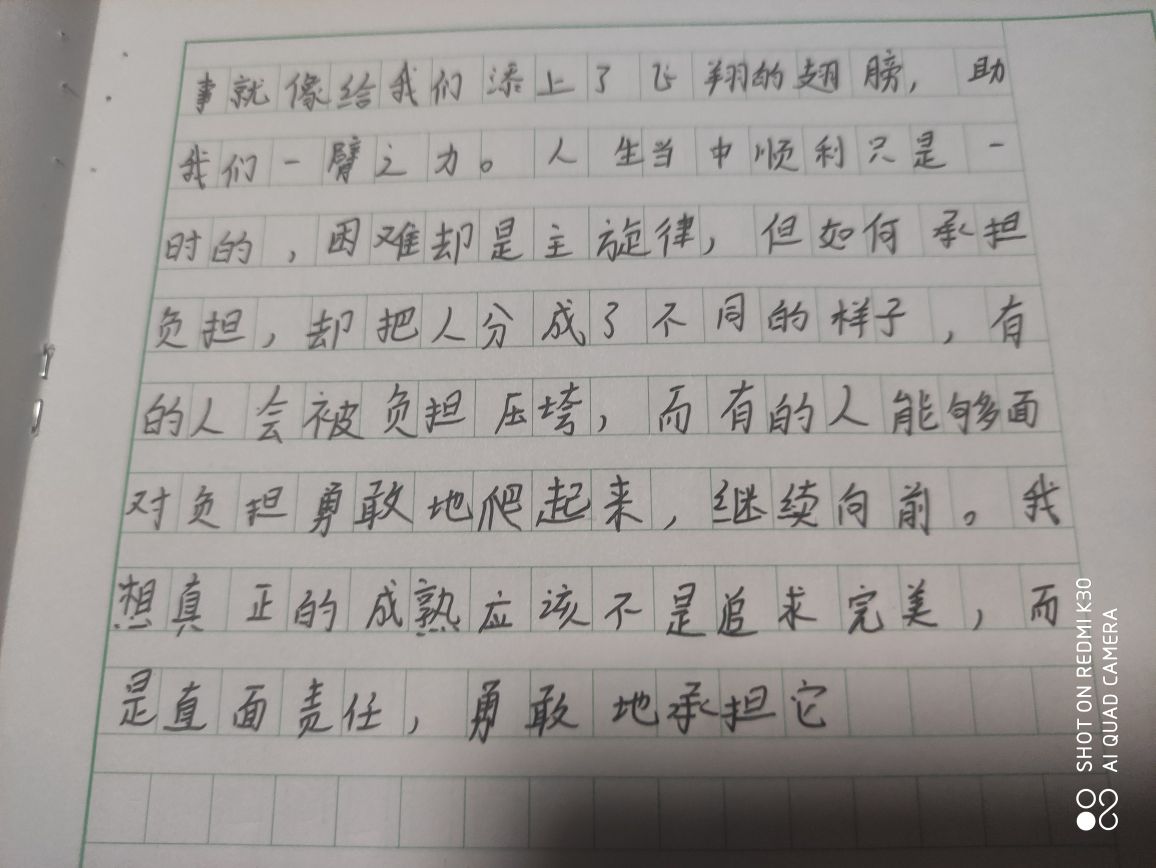 事就像给我们添上了飞翔的翅膀，助
我们一臂之力。人生当中顺利只是一
时的，困难却是主旋律，但如何承担
负担，却把人分成了不同的样子，有
的人会被负担压垮，而有的人能够面
对负担勇敢地爬起来，继续向前。我
想真正的成熟应该不是追求完美，而
是直面责任，勇敢地承担它
SHOT ON REDMI K30
AI QUAD CAMERA